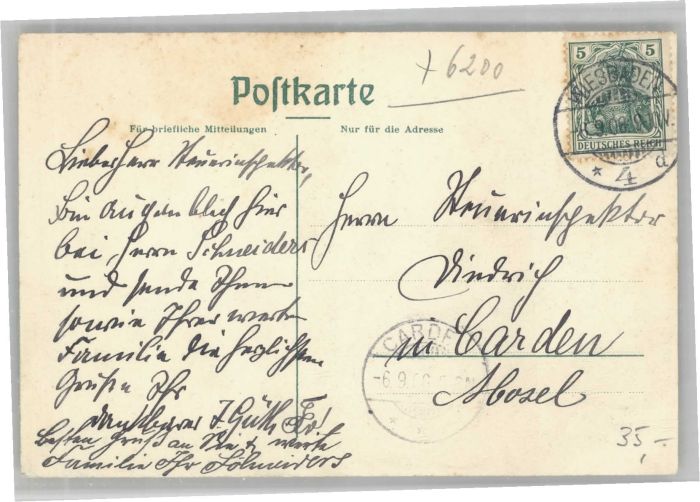 +6200
Postkarte
Für briefliche Mitteilungen
Nur für die Adresse
5 5
DEUTSCHES REICH
WIESBADEN
* 4 d
Lieber Herr Steuerinspektor,
Bin augenblich hier
bei Herrn Schneiders
und sende Ihnen
sowie Ihrer werten
Familie die herzlichsten
Grüßen Ihr
dankbarer
Besten Gruß an Sie & werte
Familie Ihr Schneiders
Herrn Steuerinspektor
Diedrich
in Carden
Mosel
CARDEN
-6.9.06
35,-